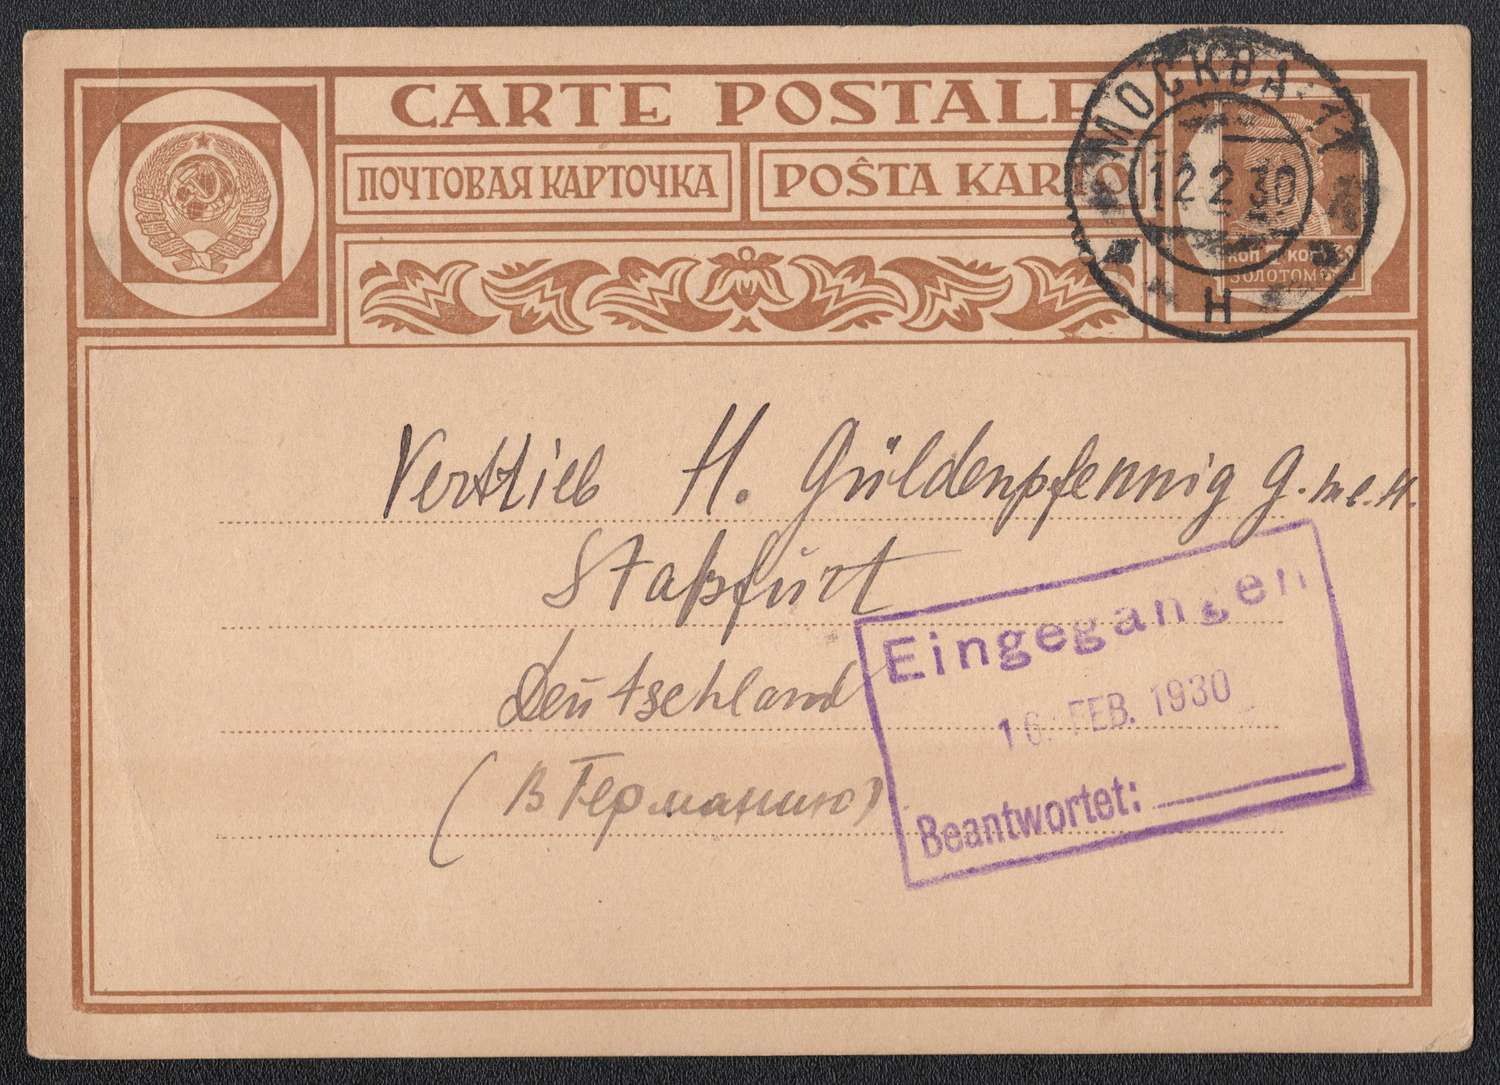 CARTE POSTALE
ПОЧТОВАЯ КАРТОЧКА
POŜTA KARTO
МОСКВА 11
12 2 30
Н
КОП
ЗОЛОТОМ
Vertrieb H. Güldenpfennig G.m.b.H.
Staßfurt
Deutschland
(в Германию)
Eingegangen
16. FEB. 1930
Beantwortet: